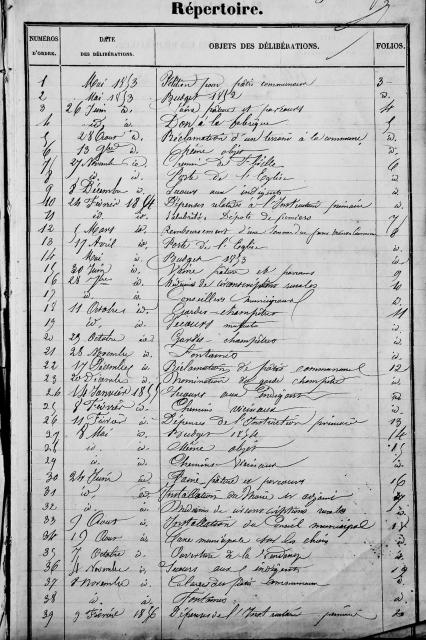 Répertoire.
NUMÉROS D'ORDRE. DATE DES DÉLIBÉRATIONS. OBJETS DES DÉLIBÉRATIONS. FOLIOS.
1 Mai 1853 Pétition pour pâtis communaux 3
2 Mai 1853 Budget 1853 d.
3 26 Juin d. Vaine pâture et parcours 4
4 d. d. Don à la fabrique 5
5 28 Août d. Réclamation d'un terrain à la commune d.
6 13 9bre d. Même objet d.
7 27 Novembre d. Chemin de 6
8 d. d. Porte de l'Eglise d.
9 8 Décembre d. Secours aux indigents d.
10 24 Février 1854 Dépenses relatives à l'Instruction primaire d.
11 d. d. Salubrité. Dépôts de fumiers 7
12 5 Mars d. Remboursement d'une somme 8
13 17 Avril d. Porte de l'Eglise d.
14 Mai d. Budget 1853 d.
15 30 Juin d. Vaine pâture et parcours 9
16 28 d. Médecins de circonscriptions rurales d.
17 d. d. Conseillers municipaux d.
18 11 Octobre d. Gardes-champêtres 11
19 d. d. Secours d.
20 29 Octobre d. Gardes-champêtres d.
21 28 Novembre d. Fontaines d.
22 17 Décembre d. Réclamation de pâtis communaux 12
23 20 Décembre d. Nomination de garde champêtre d.
24 14 Janvier 1855 Secours aux indigents d.
25 8 Février d. Chemins vicinaux d.
26 11 Février d. Dépenses de l'Instruction primaire 13
27 8 Mai d. Budget 1854 14
28 d. d. Même objet 15
29 d. d. Chemins vicinaux d.
30 24 Juin d. Vaine pâture et parcours 16
31 d. d. Installation du Maire et adjoint
32 d. d. Médecins de circonscriptions rurales d.
33 9 Août d. Installation du Conseil municipal 18
34 19 Août d. Taxe municipale sur les chiens d.
35 7 Octobre d. Ouverture de la Vendange d.
36 4 Novembre d. Secours aux indigents 19
37 8 Novembre d. des pâtis communaux d.
38 d. d. Fontaines d.
39 9 Février 1856 Dépenses de l'Instruction primaire 20